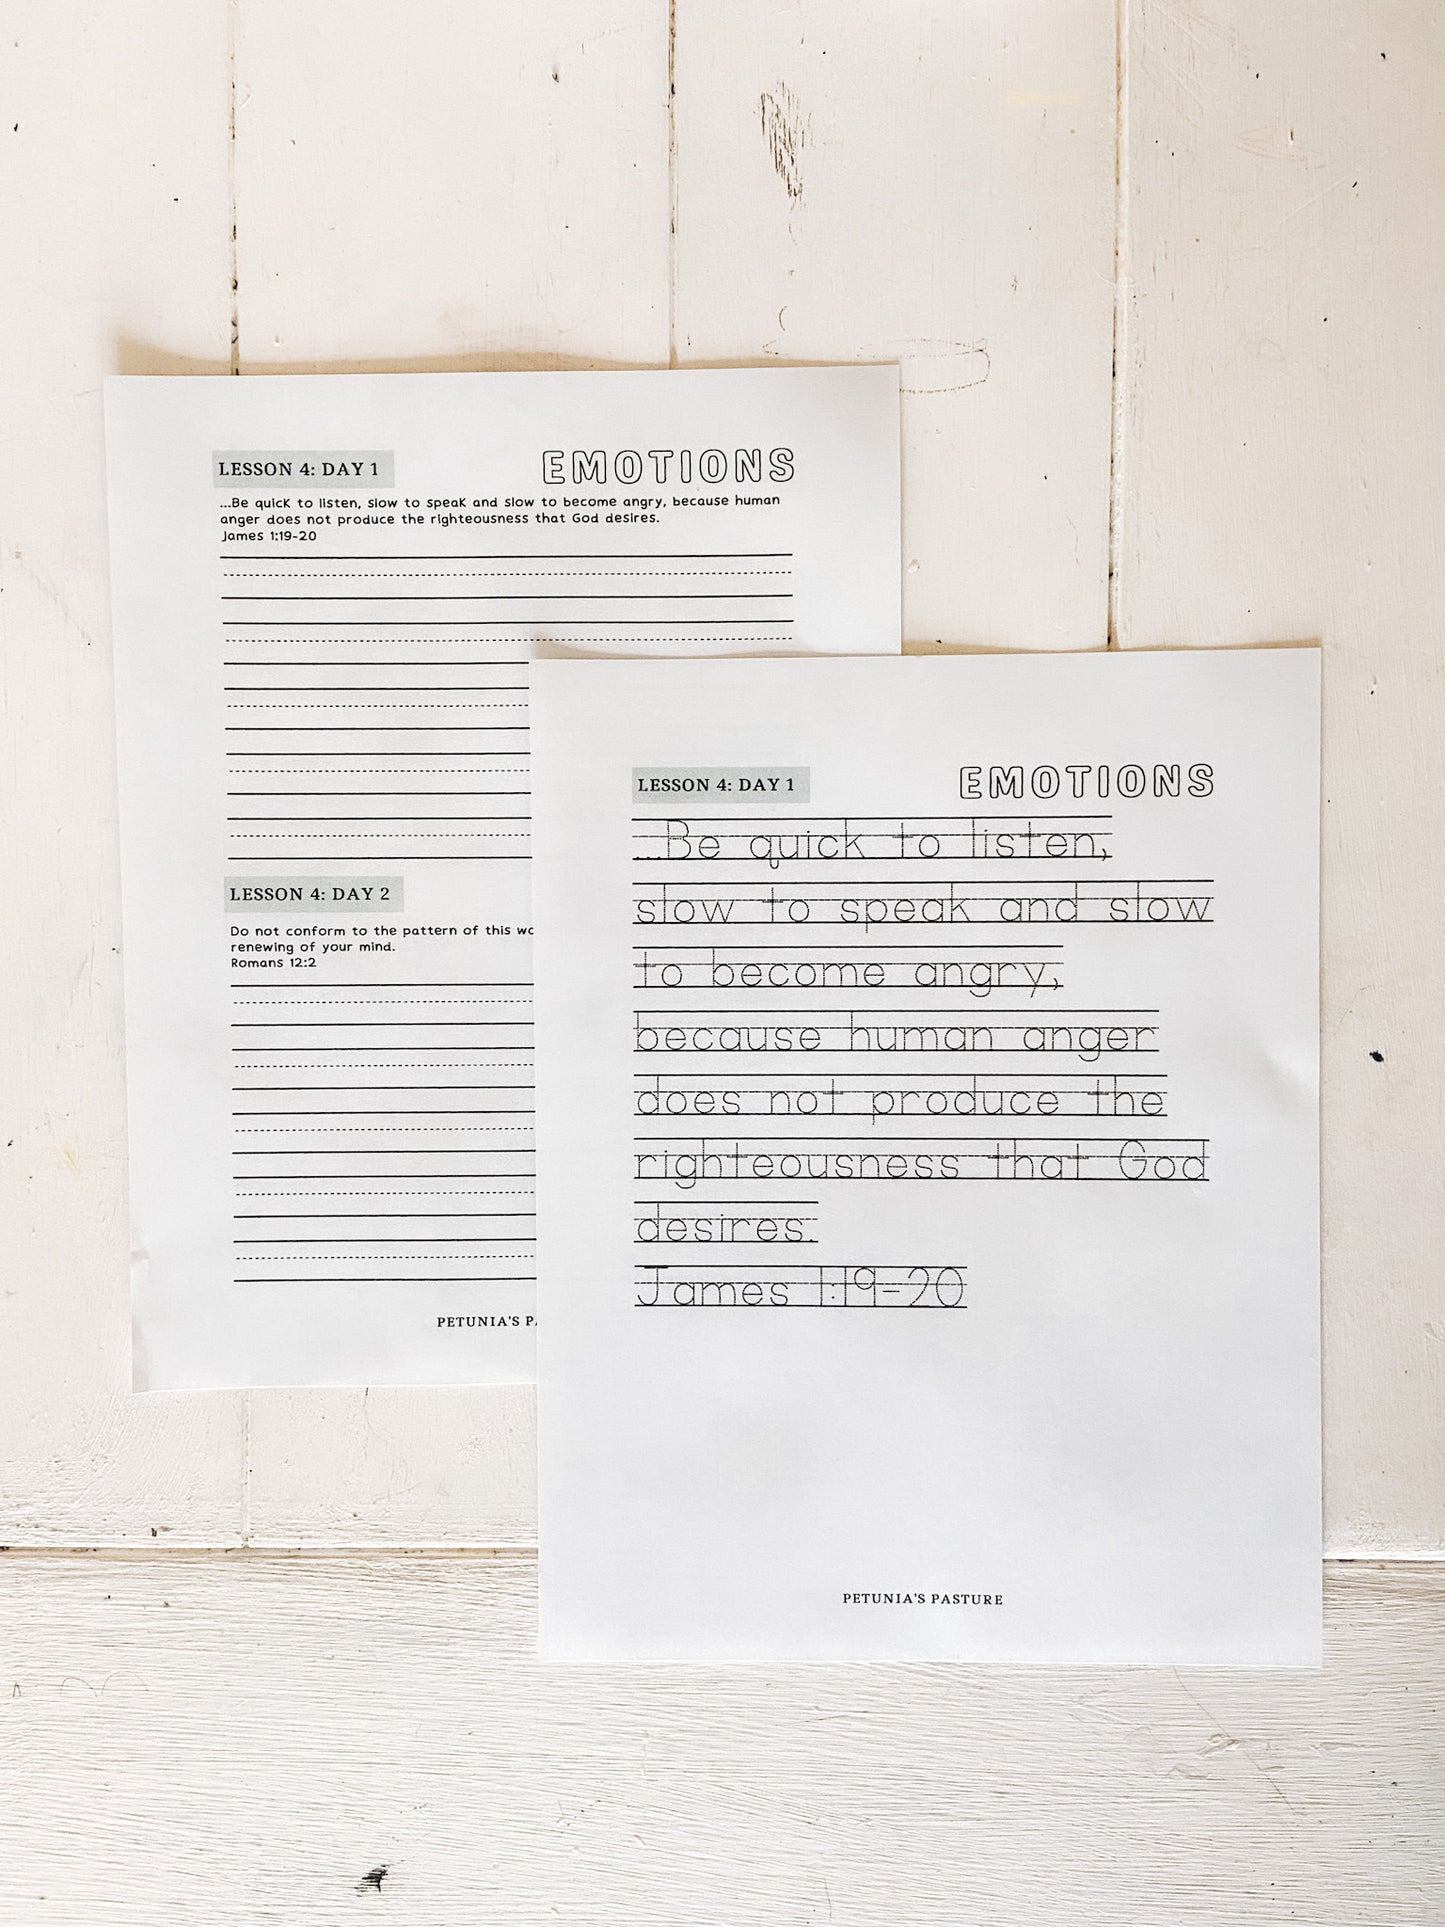 LESSON 4: DAY 1
EMOTIONS
...Be quick to listen, slow to speak and slow to become angry, because human
anger does not produce the righteousness that God desires.
James 1:19-20
LESSON 4: DAY 2
Do not conform to the pattern of this
renewing of your mind.
Romans 12:2
PETUNIA'S
LESSON 4: DAY 1
EMOTIONS
...Be quick to listen,
slow to speak and slow
to become angry,
because human anger
does not produce the
righteousness that God
desires.
James 1:19-20
PETUNIA'S PASTURE